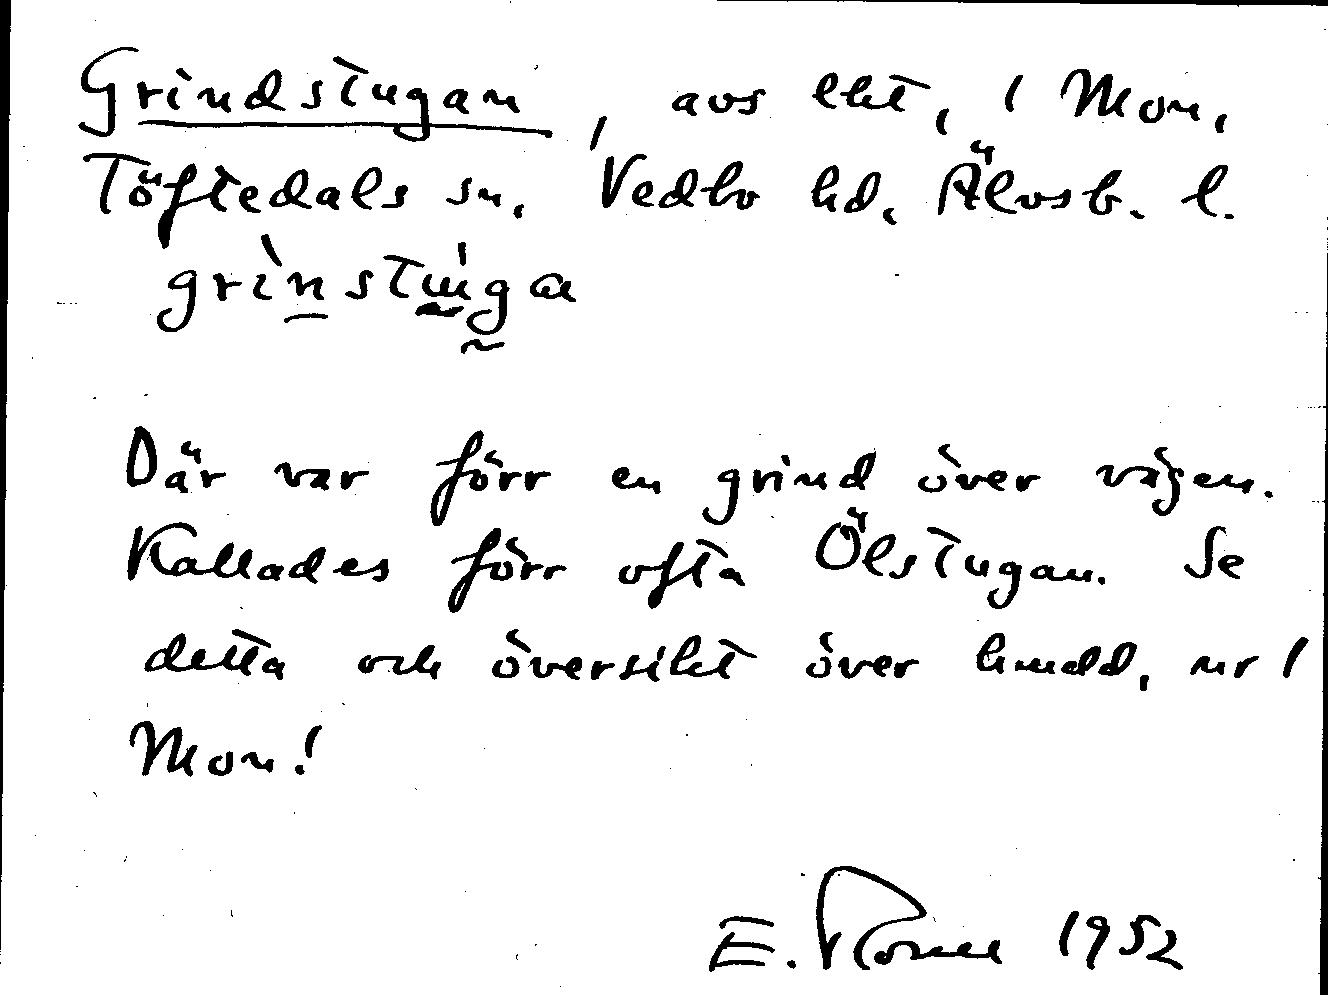 Grindstugan, avs lht, 1 Mon,
Töftedals sn, Vedbo hd. Älvsb. l.
grinstuga
Där var förr en grind över vägen.
Kallades förr ofta Ölstugan. Se
detta och översikt över humdd, nr 1
Mon!
E. 1952